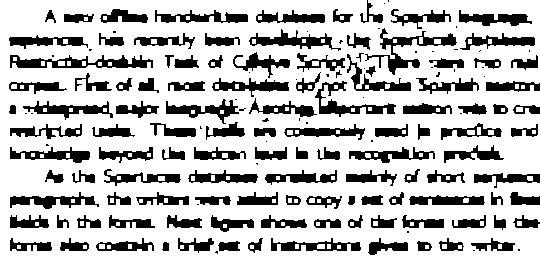 A new offline handwritten database for the Spanish language,
sentences, has recently been developed: the Spartacus database
Restricted-domain Task of Cursive Script). There were two
corpus. First of all, most databases do not contain Spanish
a widespread major language. Another important reason was to
restricted tasks. These tasks are commonly used in practice and
knowledge beyond the lexicon level in the recognition process.
As the Spartacus database consisted mainly of short sentences
paragraphs, the writers were asked to copy a set of sentences in
fields in the forms. Next figure shows one of the forms used in the
forms also contain a brief set of instructions given to the writer.